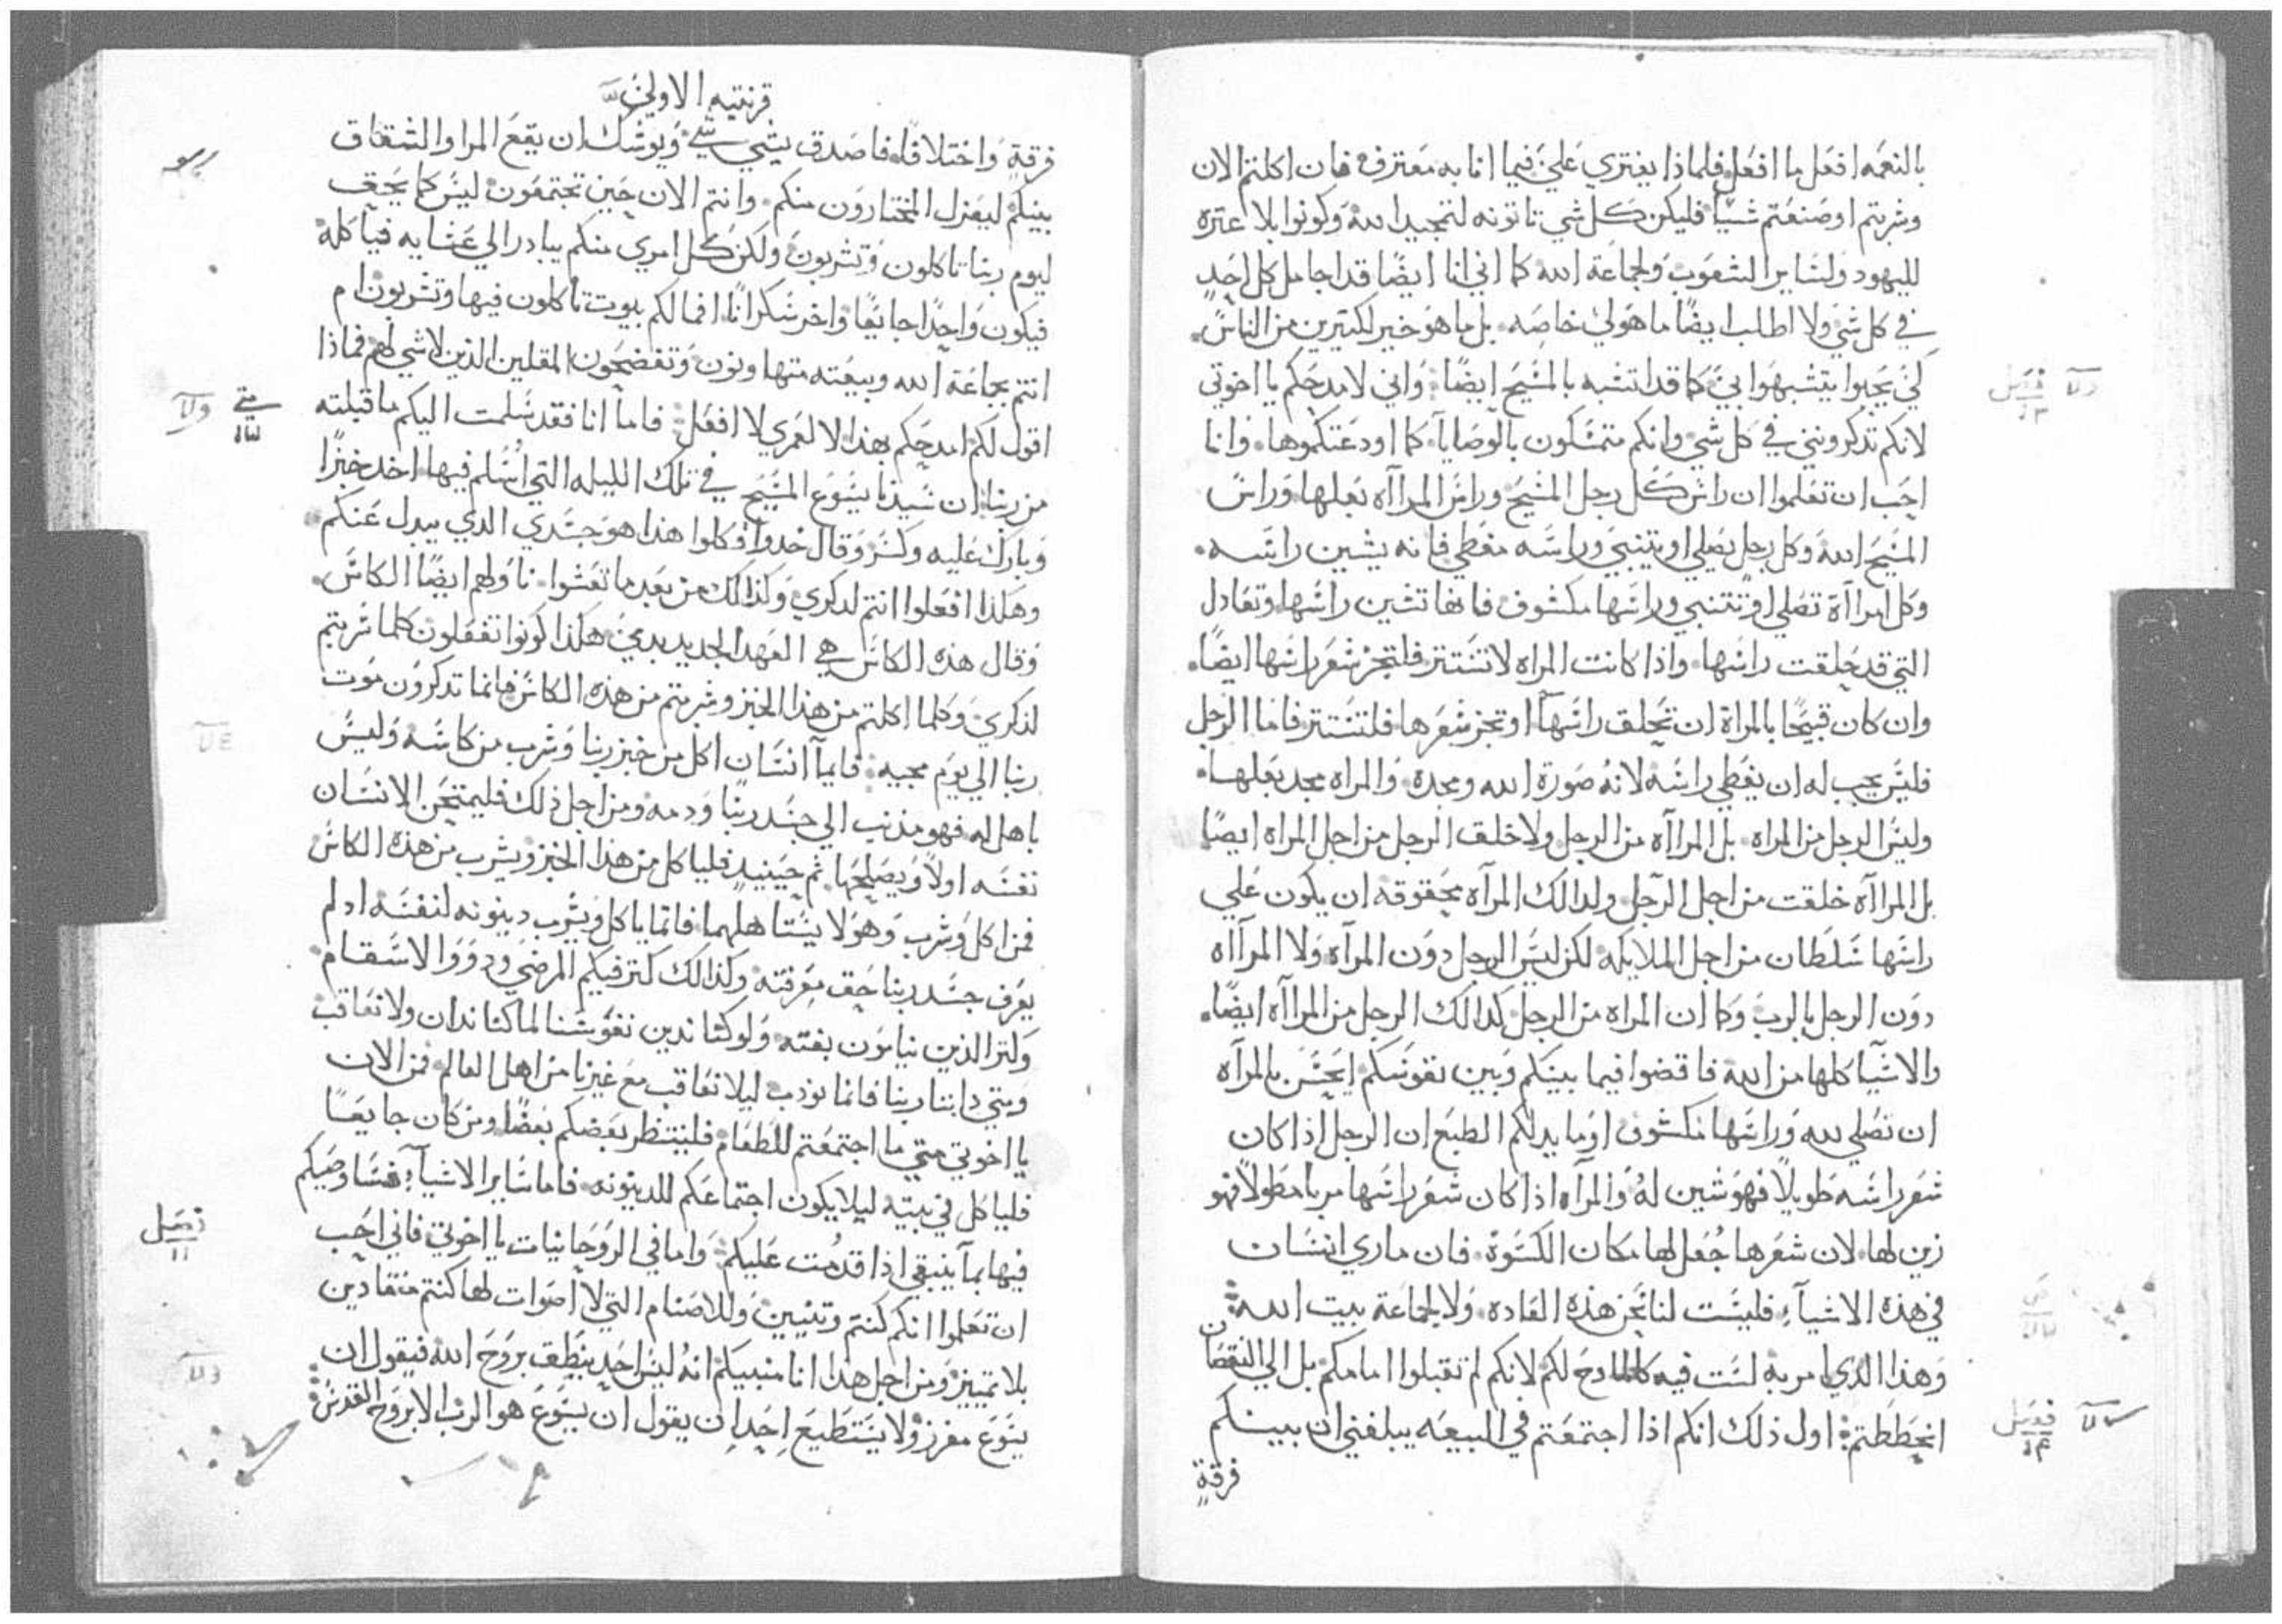 بالنعمه افعل ما افعل فلماذا يفتري علي فيما انا به معترف فان اكلتم الان
وشربتم او صنعتم شياً فليكن كل شي تاتونه لتمجيد الله وكونوا بلا عتره
لليهود ولساير الشعوب ولجماعة الله كما اني انا ايضًا قد اجامل كل احدٍ
في كل شي ولا اطلب ايضًا ما هو لي خاصه بل ما هو خير لكتيرين من الناس
تشبهوا بي كما قد اتشبه بالمسيح ايضًا واني لامدحكم يا اخوتي
لانكم تذكرونني في كل شي وانكم متمسكون بالوصايا كما اودعتكموها وانا
احب ان تعلموا ان راس كل رجل المسيح وراس المراآه بعلها وراس
المسيح الله وكل رجل يصلي او يتنبي وراسه مغطي فانه يشين راسه
وكل امراآة تصلي او تتنبي وراسها مكشوف فانها تشين راسها وتعادل
التي قد حلقت راسها واذا كانت المراه لا تستتر فلتجز شعر راسها ايضًا
وان كان قبيحًا بالمراة ان تحلق راسها او تجز شعرها فلتستتر فاما الرجل
فليس يجب له ان يغطي راسه لانه صورة الله ومجده والمراه مجد بعلها
وليس الرجل من المراه بل المراآه من الرجل ولا خلق الرجل من اجل المراه ايضًا
بل المراآه خلقت من اجل الرجل ولدالك المرآه محقوقه ان يكون علي
راسها سلطان من اجل الملايكه لكن ليس الرجل دون المرآه ولا المرآاه
دون الرجل بالرب وكما ان المراه من الرجل كدالك الرجل من المراآه ايضًا
والاشيآ كلها من الله فاقضوا فيما بينكم وبين نفوسكم ايحسن بالمرآه
ان تصلي لله وراسها مكشوف او ما يدلكم الطبع ان الرجل اذا كان
شعر راسه طويلاً فهو شين له والمرآه اذا كان شعر راسها مربا مطولاً فهو
زين لها لان شعرها جُعل لها مكان الكسوة فان ماري انسان
في هذه الاشيآء فليست لنا نحن هذه العاده ولا لجماعة بيت الله
وهذا الذي امر به لست فيه كالمادح لكم لانكم لم تقبلوا امامكم بل الي النقصان
انحططتم اول ذلك انكم اذا اجتمعتم في البيعه يبلغني ان بينكم
فرقةٍ
فصل
١٣
فصل
١٤
قرنتيه الاولي
فرقةٍ واختلافًا فاصدق بشي شي ويوشك ان يقع المرا والشقاق
بينكم ليعزل المختارون منكم وانتم الان حين تجتمعون ليس كما يحق
ليوم ربنا تاكلون وتشربون ولكن كل امري منكم يبادر الي عشايه فياكله
فيكون واحدًا جايعًا واخر سكرانًا افما لكم بيوت تاكلون فيها وتشربون ام
انتم بجماعة الله وبيعته متهاونون وتفضحون المقلين الذين لا شي لهم فماذا
اقول لكم امدحكم بهذا لا لعمري لا افعل فاما انا فقد سلمت اليكم ما قبلته
من ربنا ان سيدنا يسوع المسيح في تلك الليله التي اُسلم فيها اخد خبزًا
وبارك عليه وكسر وقال خدوا فكلوا هذا هو جسدي الدي يبدل عنكم
وهكذا افعلوا انتم لدكري وكذالك من بعد ما تعشوا ناولهم ايضًا الكاس
وقال هذه الكاس هي العهد الجديد بدمي هكذا كونوا تفعلون كلما شربتم
لذكري وكلما اكلتم من هذا الخبز وشربتم من هذه الكاس فانما تدكرون موت
ربنا الي يوم مجيه فايما انسان اكل من خبز ربنا وشرب من كاسه وليس
باهل له فهو مذنب الي جسد ربنا ودمه ومن اجل ذلك فليمتحن الانسان
نفسه اولاً ويصلحها ثم حينيد فلياكل من هذا الخبز ويشرب من هذه الكاس
فمن اكل وشرب وهو لا يستاهلهما فانما ياكل ويشرب دينونه لنفسه اد لم
يعرف جسد ربنا حق معرفته وكذالك كتر فيكم المرضي ودووا الاسقام
وكتر الذين ينامون بغته ولو كنا ندين نفوسنا لما كنا ندان ولا نعاقب
ومتي داينا ربنا فانما نودب ليلا نعاقب مع غيرنا من اهل العالم فمن الان
يا اخوتي متي ما اجتمعتم للطعام فلينتظر بعضكم بعضًا ومن كان جايعًا
فلياكل في بيته ليلا يكون اجتماعكم للدينونه فاما ساير الاشيآء فساوصيكم
فيها بما ينبغي اذا قدمت عليكم واما في الروحانيات يا اخوتي فاني احب
ان تعلموا انكم كنتم وتنيين وللاصنام التي لا اصوات لها كنتم منقادين
بلا تمييز ومن اجل هدا انا منبيكم انه ليس احد ينطق بروح الله فيقول ان
يسوع مفرز ولا يستطيع احد ان يقول ان يسوع هو الرب الا بروح القدس
فصل
١١